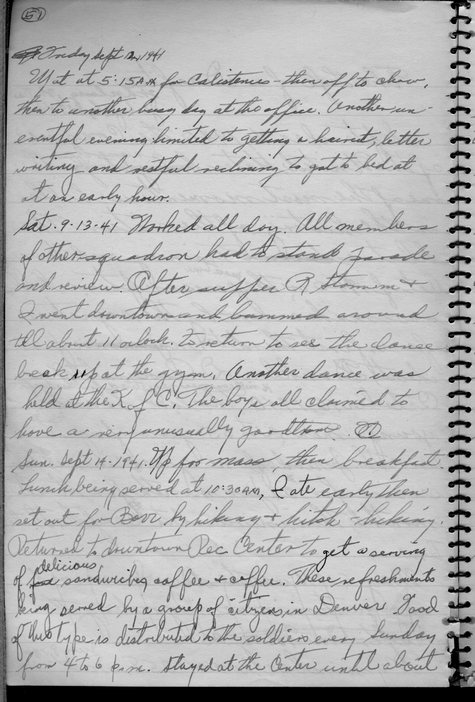 51
Friday Sept 12, 1941
Up at at 5:15 AM for Calistenics - then off to chow,
then to another busy day at the office. Another un-
eventful evening limited to getting a haircut, letter
writing and restful reclining to get to bed at
at an early hour.
Sat. 9-13-41 Worked all day. All members
of other squadron had to stand parade
and review. After supper R. &
I went downtown and bummed around
till about 11 oclock. To return to see the dance
break up at the gym. Another dance was
held at the K. of C. The boys all claimed to
have a very unusually good time.
Sun. Sept 14-1941. Up for mass, then breakfast.
Lunch being served at 10:30 AM, I ate early then
set out for by hiking & hitch-hiking.
Returned to downtown Rec Center to get a serving
of delicious sandwiches coffee & coffee. These refreshments
being served by a group of citizens in Denver. Food
of this type is distributed to the soldiers every Sunday
from 4 to 6 p.m. Stayed at the Center until about